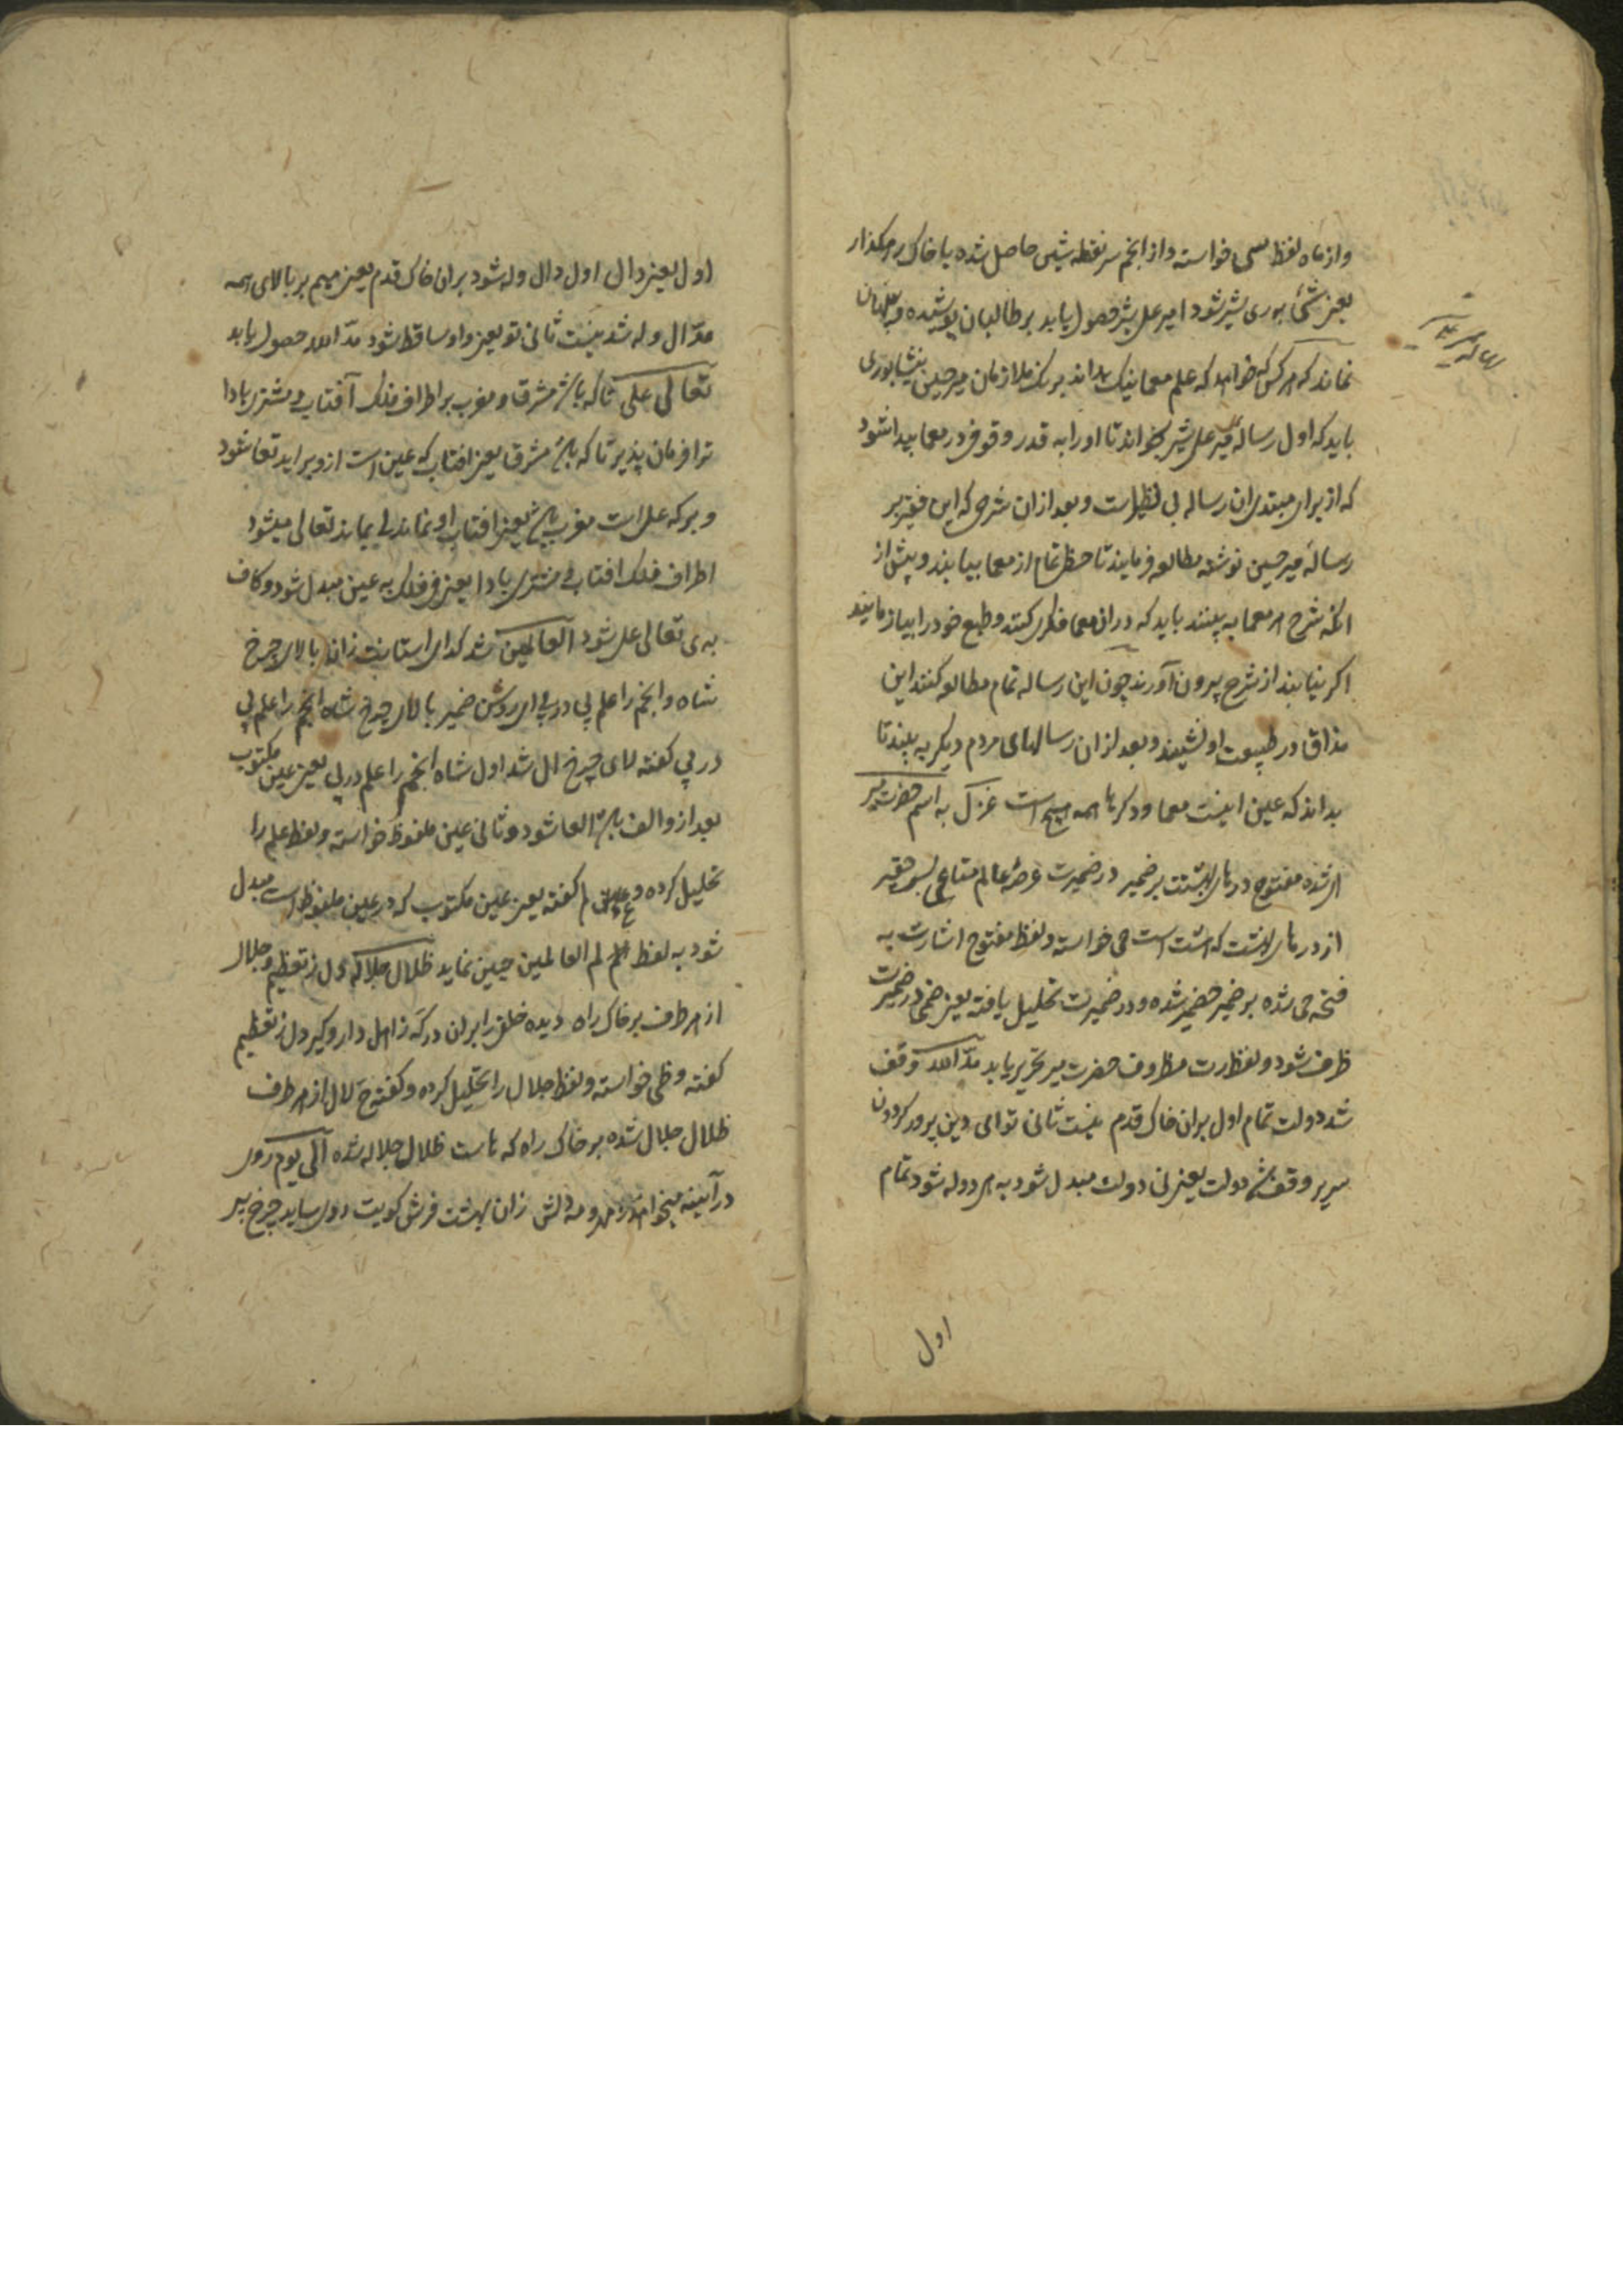 و از ماه لفظ سی خواسته و از انجم سر نقطه شیی حاصل شده با خاک رهگذار
یعنی شیء به ری شیر شود امیر علی شیر حصول یابد بر طالبان پوشیده و پنهان
نماند که هر کس که خواهد که علم معما نیک بداند بر سَنَن ملازمان میر حسین نیشابوری
باید که اول رساله میر علی شیر بخواند تا او را به قدر وقوفی در معما پیدا شود
که از برای مبتدی ان رساله بی نظیر است و بعد از ان شرح که این فقیر بر
رسالهٔ میر حسین نوشته مطالعه فرمایند تا حظ تمام از معما بیابند و پیش از
انکه شرح هر معما به بینند باید که در ان معما فکری کنند و طبع خود را بیازمایند
اکر نیابند از شرح بیرون آورند چون این رساله تمام مطالعه کنند این
مذاق در طبیعت او نشیند و بعد از ان رسالهای مردم دیکر به بینند تا
بداند که عین اینست معما و دکرها همه هیچ است غزل به اسم حضرت میر
ای شده مفتوح درهای بهشتت بر ضمیر در ضمیرت عرصهٔ عالم متاعی بس حقیر
از درهای بهشت که هشت است حی خواسته و لفظ مفتوح اشارت به
فتحه حی شده بر ضمیر حضمیر شده و در ضمیرت تحلیل یافته یعنی ضمی در ضمیرت
ظرف شود و لفظ رت مظروف حضرت میر تحریر یابد مدّ الله وقف
شد دولت تمام اول بران خاک قدم نیست ثانی تو ای دین پرور کردون
سریر وقف شد دولت یعنی تی دولت مبدل شود به هی دوله شود تمام
اول
اول یعنی دال اول دال وله شود بران خاک قدم یعنی میم بر بالای همه
مدّال وله شد نیست ثانی تو یعنی واو ساقط شود مدّ الله حصول یابد
تعالی علی تا که باشد مشرق و مغرب بر اطراف فلک آفتاب و مشتری بادا
ترا فرمان پذیر تا که باشد مشرق یعنی افتاب که عین است از وی براید تعا شود
و برکه علی است مغرب باشد یعنی افتاب او نماند لی بماند تعالی میشود
اطراف فلک افتاب و مشتری بادا یعنی فی فلک به عین مبدل شود و کاف
به ی تعالی علی شود العالمین شد کدای استانت زانکه بالای چرخ
شاه و انجم را علم پی در پی ای روشن ضمیر بالای چرخ شاه انجم را علم پی
در پی کفته لای چرخ ال شد اول شاه انجم را علم در پی یعنی عین مکتوب
بعد از و الف باشد العا شود و ثانی عین ملفوظ خواسته و لفظ علم را
تحلیل کرده و ع لم کفته یعنی عین مکتوب که در عین ملفوظ است مبدل
شود به لفظ لم العالمین حبین نماید ظلال جلاله ای دل ز تعظیم و جلال
از هر طرف بر خاک راه دیده خلق را بران درکه ز اهل دار و کیر دل ز تعظیم
کفته و ظی خواسته و لفظ جلال را تحلیل کرده و کفته ج لال از هر طرف
ظلال جلال شده بر خاک راه که هاست ظلال جلاله شده آلی یوم روی
در آینه میخواهد مه و مه دلش زان بهشت فرش کویت روی ساید چرخ پیر